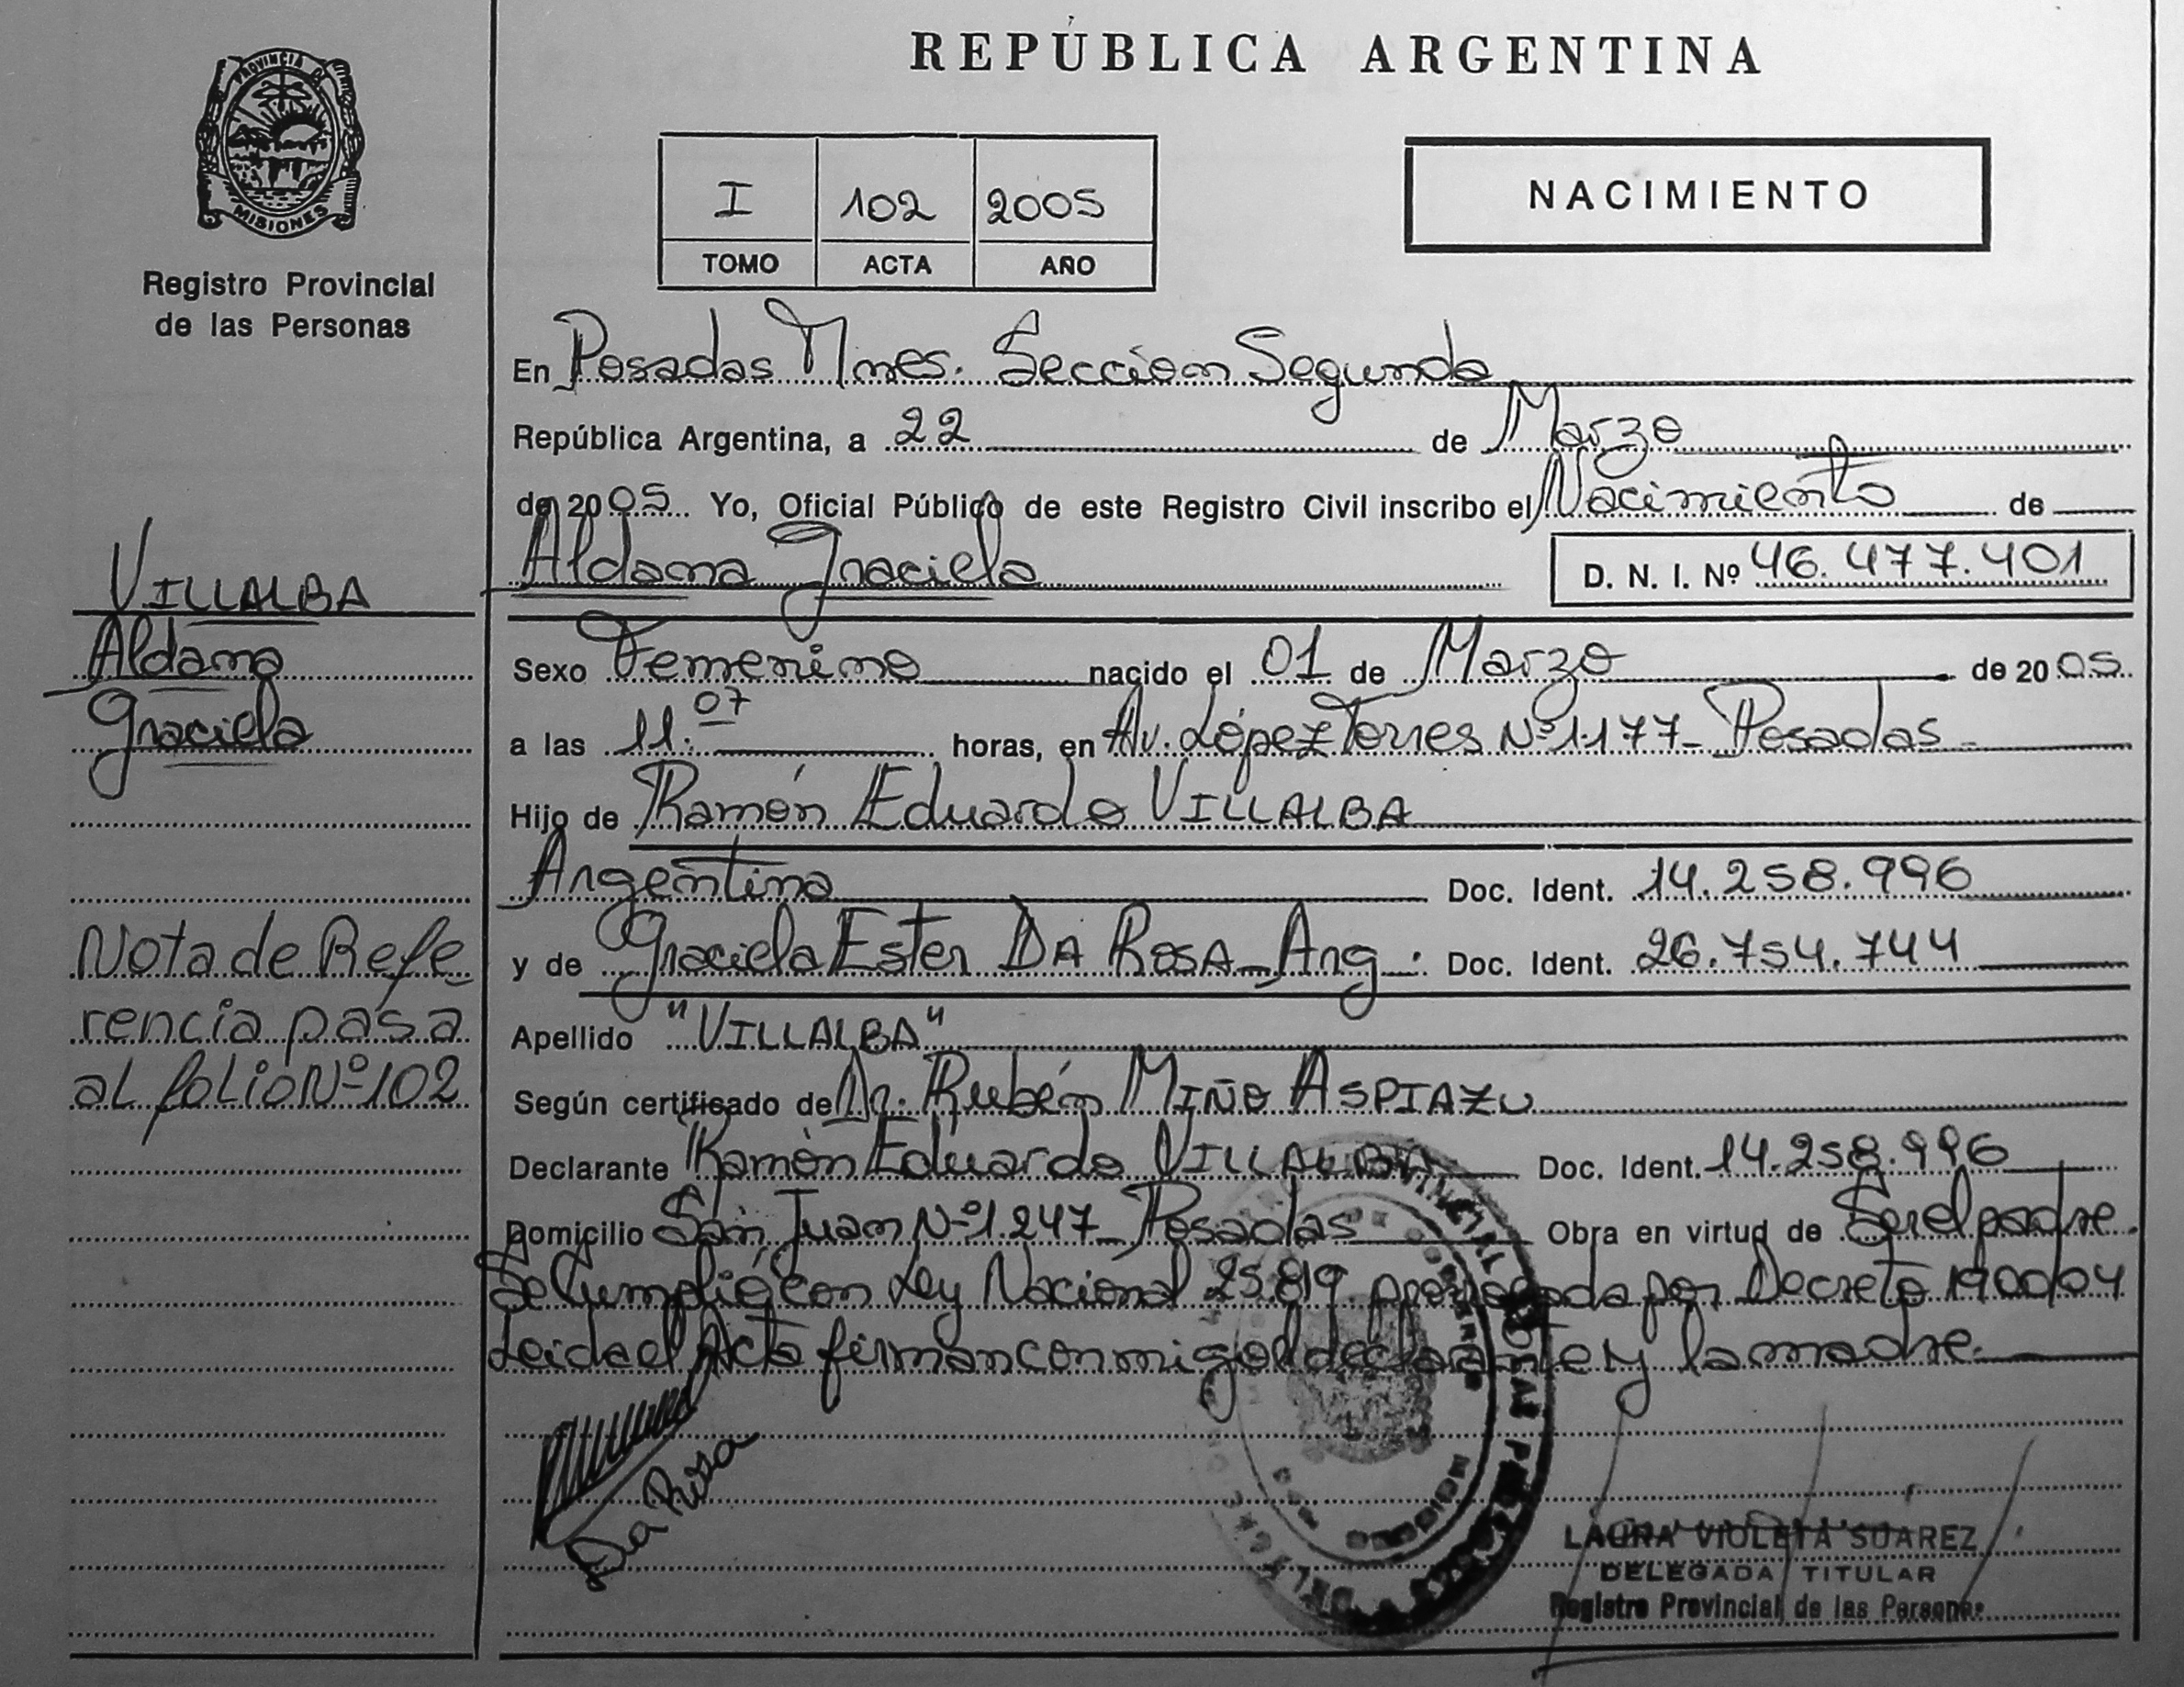 REPÚBLICA ARGENTINA
PROVINCIA D
MISIONES
Registro Provincial
de las Personas
I 102 2005
TOMO ACTA AÑO
NACIMIENTO
En Posadas Mnes. Sección Segunda
República Argentina, a 22 de Marzo
de 2005 Yo, Oficial Público de este Registro Civil inscribo el Nacimiento de
Aldana Graciela D. N. I. Nº 46.477.401
VILLALBA
Aldana
Graciela
Sexo Femenino nacido el 01 de Marzo de 2005.
a las 11.07 horas, en Av. López Torres Nº 1.177_ Posadas_
Hijo de Ramón Eduardo VILLALBA
Argentina Doc. Ident. 14.258.996
y de Graciela Ester DA ROSA_Arg. Doc. Ident. 26.754.744
Apellido "VILLALBA"
Según certificado de Dr. Rubén MIÑO ASPIAZU
Declarante Ramón Eduardo VILLALBA Doc. Ident. 14.258.996
Domicilio San Juan Nº 1.247_ Posadas Obra en virtud de Ser el padre.
Se Cumplió con Ley Nacional 25.819 prorrogada por Decreto 1900/04
Leida el Acta firman conmigo el declarante y la madre.
Nota de Refe-
rencia pasa
al folio Nº 102
Da Rosa
LAURA VIOLETA SUAREZ
DELEGADA TITULAR
Registro Provincial de las Personas